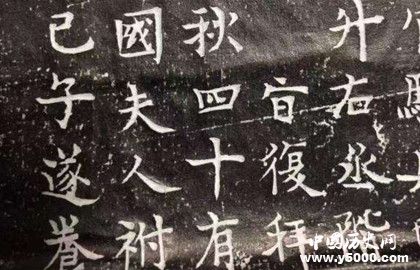 升右丞階
旨復拜
秋四十有
國夫人祔
己子遂
中国历史网
www.y5000.com